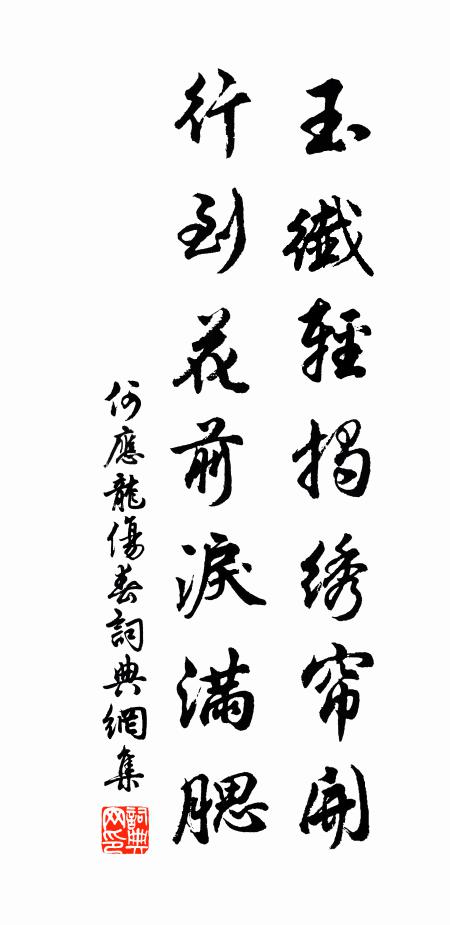 玉纖輕揭绣帘開
行到花前淚滿腮
何應龍傷春詞典網集
詞典网印